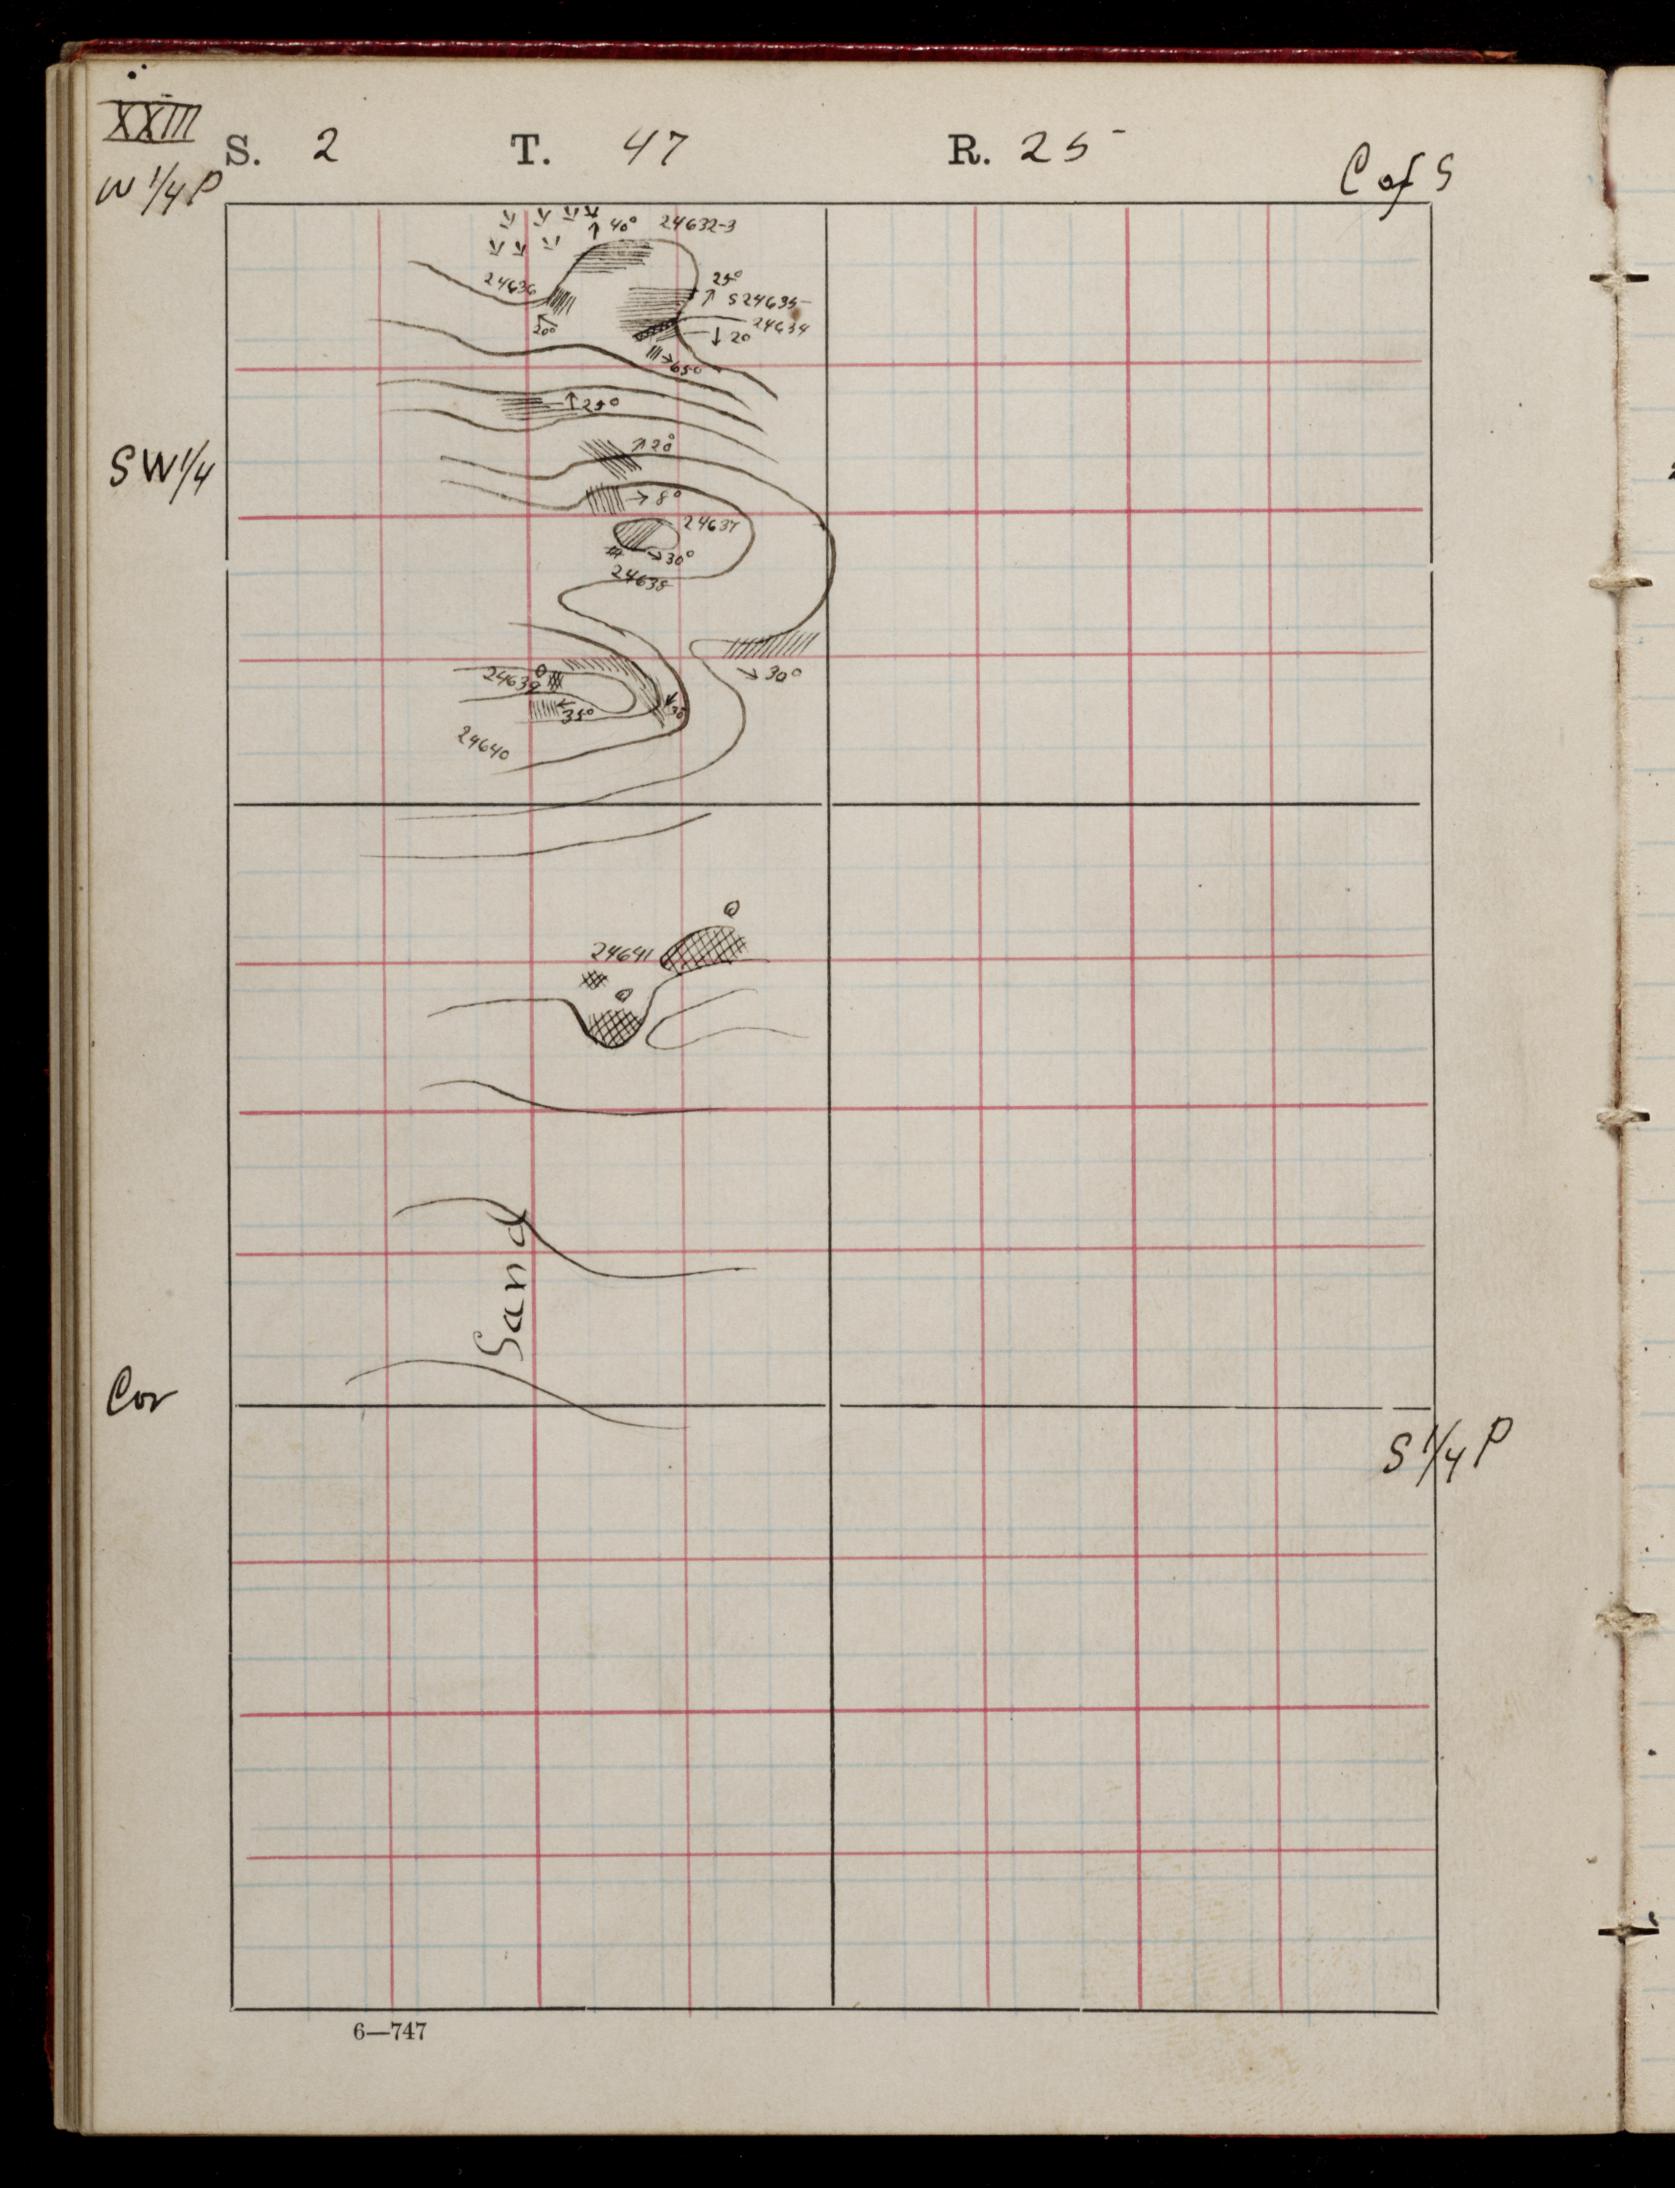 XXIII
S. 2 T. 47 R. 25
W 1/4 P
C of S
40° 24632-3
24636
25°
S24635
24634
20°
20
65°
25°
SW 1/4
20°
8°
24637
30°
24638
30°
24639
35°
24640
24641
Sand
Cor
S 1/4 P
6—747